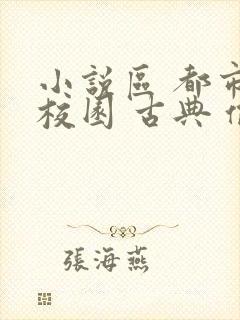 小說區 都市
校園 古典
張海燕